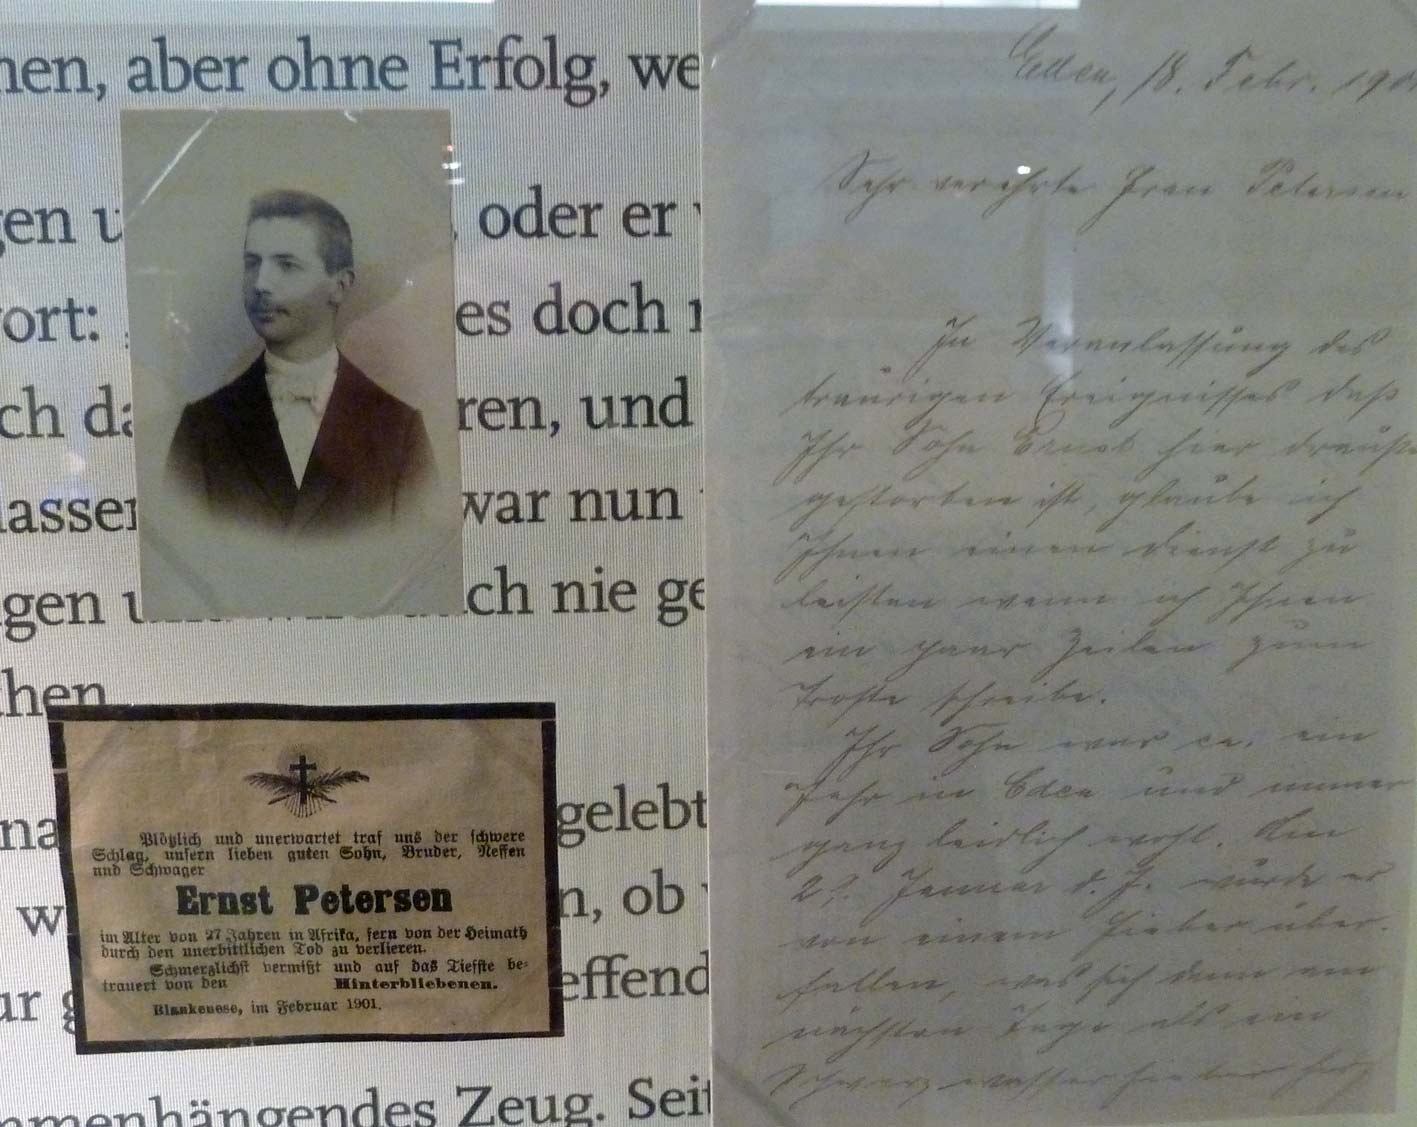 nen, aber ohne Erfolg, we
gen u oder er
ort: es doch
ch da ren, und
lassen war nun
gen u ch nie ge
chen
na gelebt
w n, ob
ur g effend
mmenhängendes Zeug. Seit
Plötzlich und unerwartet traf uns der schwere
Schlag, unsern lieben guten Sohn, Bruder, Neffen
und Schwager
Ernst Petersen
im Alter von 27 Jahren in Afrika, fern von der Heimath
durch den unerbittlichen Tod zu verlieren.
Schmerzlichst vermißt und auf das Tiefste be-
trauert von den Hinterbliebenen.
Blankenese, im Februar 1901.
Edea, 18. Febr. 190
Sehr verehrte Frau Petersen
In Veranlassung des
traurigen Ereignisses daß
Ihr Sohn Ernst hier drauße
gestorben ist, glaube ich
Ihnen einen Dienst zu
leisten wenn ich Ihnen
ein paar Zeilen zum
Troste schreibe.
Ihr Sohn war ca. ein
Jahr in Edea und immer
ganz leidlich wohl. Am
Januar d. J. wurde er
von einem Fieber über-
fallen, was sich dann am
nächsten Tage als ein
Schwarzwasserfieber